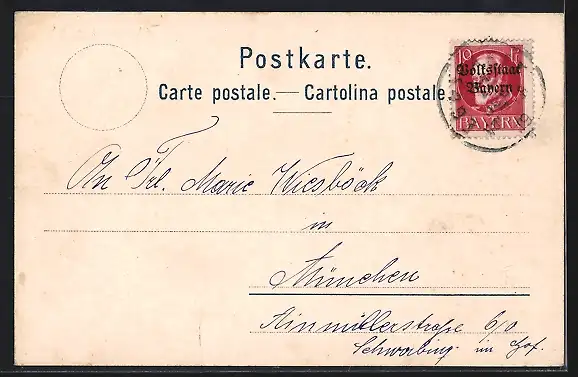 Postkarte.
Carte postale.— Cartolina postale.
10 Pf
Volksstaat
Bayern
BAYERN
An Frl. Marie Wiesböck
in
München
Ainmillerstraße 6/0
Schwabing im Hof.